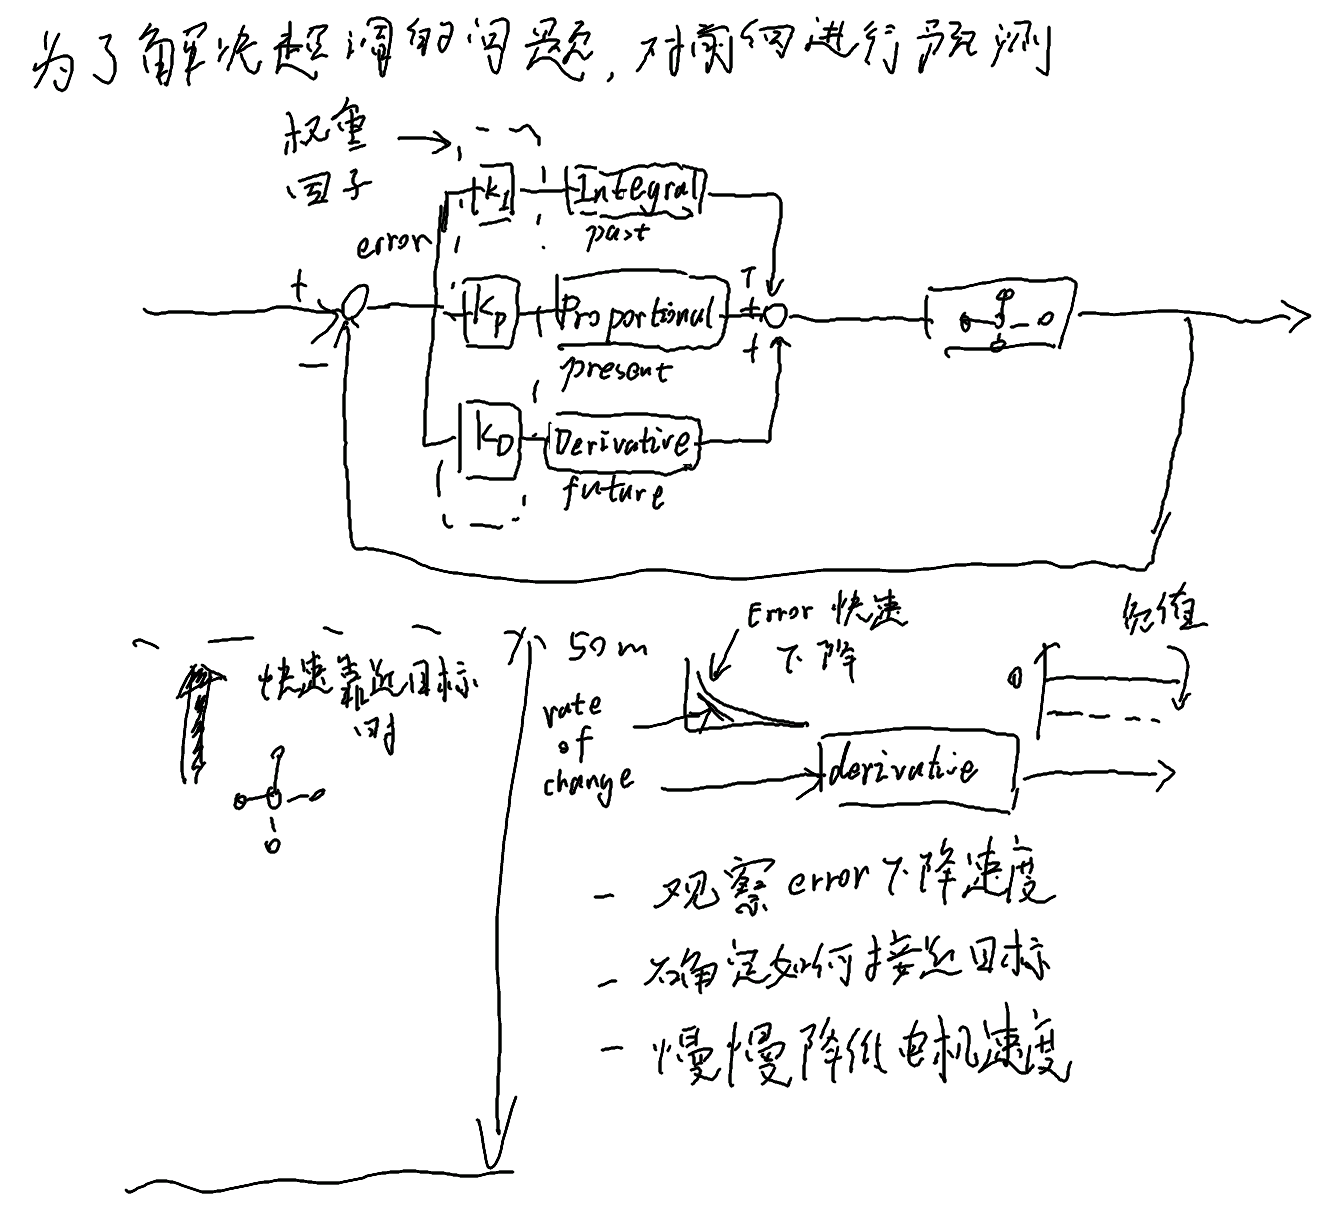 为了解决超调的问题,对前向进行预测
权重
因子
error
+
-
K_I
Integral
past
K_P
Proportional
present
K_D
Derivative
future
+
+
+
50m
快速靠近目标
时
Error 快速
下降
rate
of
change
derivative
0
负值
- 观察error下降速度
- 确定如何接近目标
- 慢慢降低电机速度